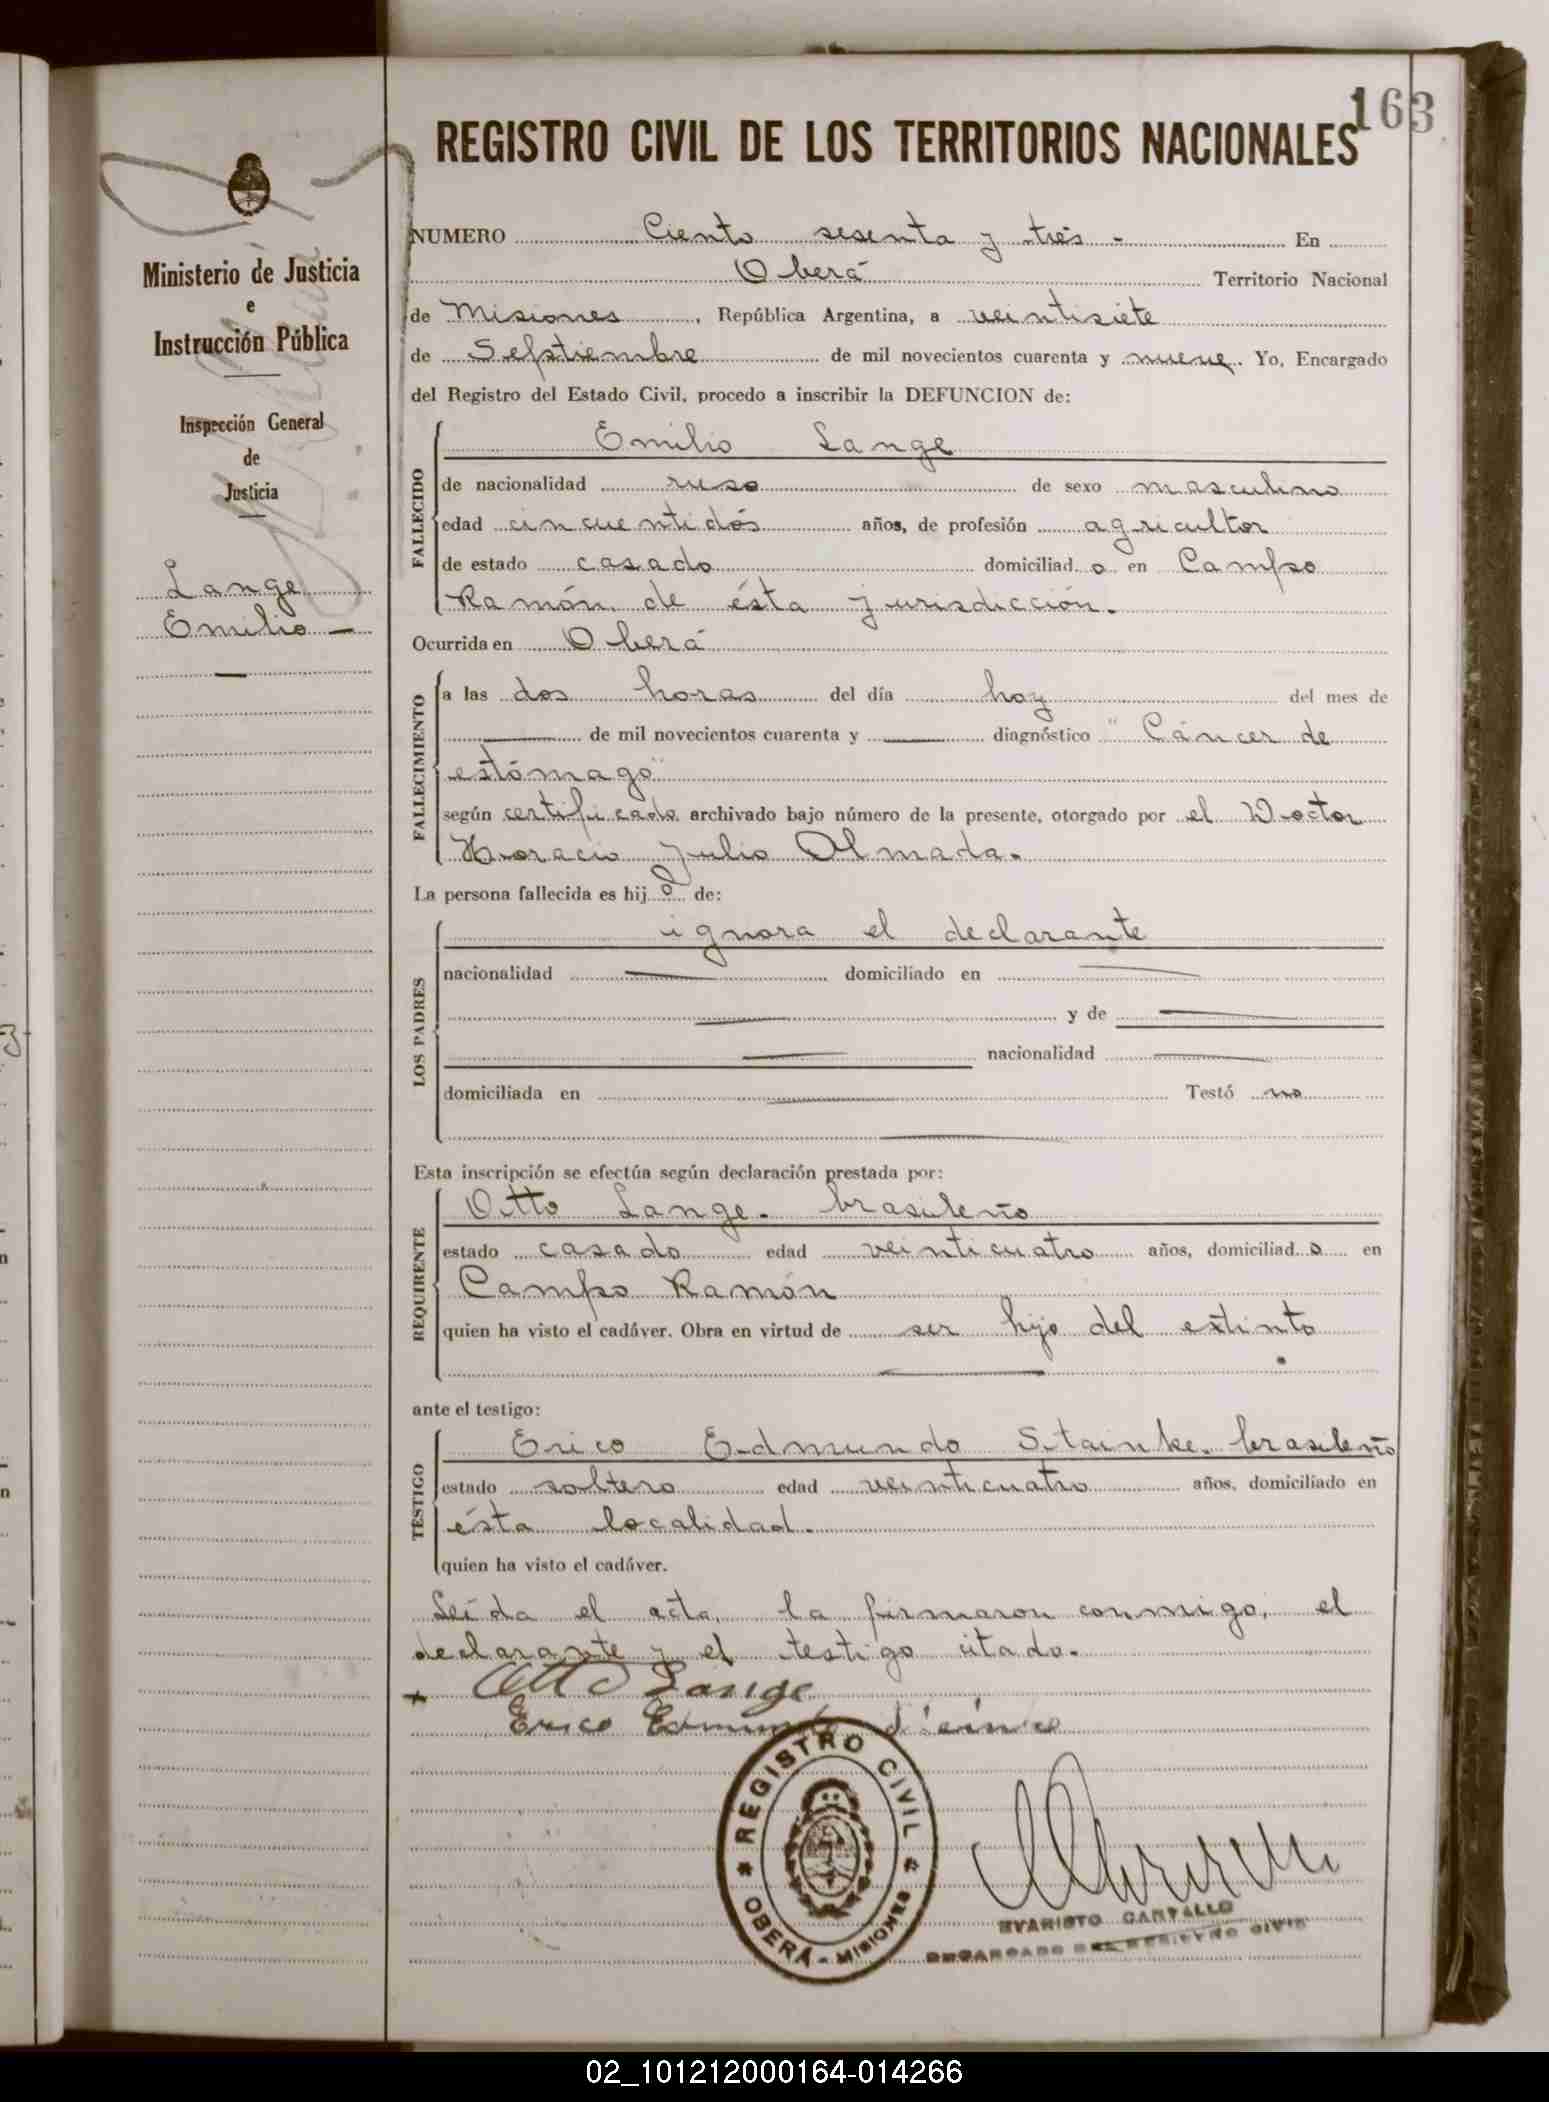 163
REGISTRO CIVIL DE LOS TERRITORIOS NACIONALES
Ministerio de Justicia
e
Instrucción Pública
Inspección General
de
Justicia
Lange
Emilio —
NUMERO Ciento sesenta y tres - En
Oberá Territorio Nacional
de Misiones, República Argentina, a veintisiete
de Septiembre de mil novecientos cuarenta y nueve. Yo, Encargado
del Registro del Estado Civil, procedo a inscribir la DEFUNCION de:
FALLECIDO
Emilio Lange
de nacionalidad ruso de sexo masculino
edad cincuentidós años, de profesión agricultor
de estado casado domiciliado en Campo
Ramón de ésta jurisdicción.
Ocurrida en Oberá
FALLECIMIENTO
a las dos horas del día hoy del mes de
— de mil novecientos cuarenta y — diagnóstico "Cáncer de
estómago"
según certificado archivado bajo número de la presente, otorgado por el Doctor
Horacio Julio Almada.
La persona fallecida es hijo de:
LOS PADRES
ignora el declarante
nacionalidad — domiciliado en —
— y de —
— nacionalidad —
domiciliada en — Testó no
—
Esta inscripción se efectúa según declaración prestada por:
REQUIRENTE
Otto Lange. brasileño
estado casado edad veinticuatro años, domiciliado en
Campo Ramón
quien ha visto el cadáver. Obra en virtud de ser hijo del extinto
—
ante el testigo:
TESTIGO
Erico Edmundo Stainke. brasileño
estado soltero edad veinticuatro años, domiciliado en
ésta localidad.
quien ha visto el cadáver.
Leída el acta, la firmaron conmigo, el
declarante y el testigo citado.
Otto Lange
Erico Edmundo
REGISTRO CIVIL
OBERÁ - MISIONES
EVARISTO CARVALLO
ENCARGADO DEL REGISTRO CIVIL
02_101212000164-014266